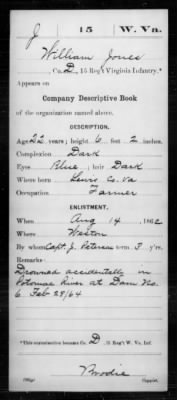 J 15 W. Va.
William Jones
Co. D, 15 Reg't Virginia Infantry.*
Appears on
Company Descriptive Book
of the organization named above.
DESCRIPTION.
Age 22 years; height 6 feet 2 inches.
Complexion Dark
Eyes Blue; hair Dark
Where born Lewis Co. Va
Occupation Farmer
ENLISTMENT.
When Aug 14, 1862
Where Weston
By whom Capt. J. term 3 y'rs.
Remarks:
Drowned accidentally in
Potomac River at Dam No.
6 Feb 29/64
*This organization became Co. D, 15 Reg't W. Va. Inf.
Brodie
Copyist.